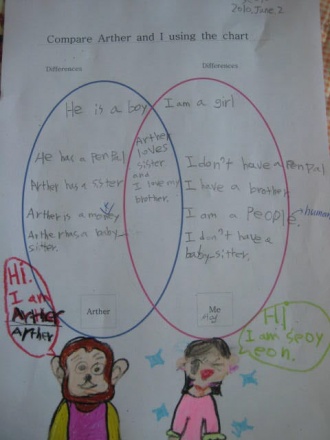 2010, June. 2
Compare Arther and I using the chart
Differences
Differences
He is a boy
I am a girl
Arther
loves
sister
and
I love my
brother.
He has a Pen Pal
Arther has a sister
Arther is a
Arther has a baby-
sitter.
I don't have a Pen Pal
I have a brother
I am a PeoPLe
human
I don't have a
baby sitter.
Arther
Me
Hi.
I am
Arther
Arther
Hi
I am seoy
eon.